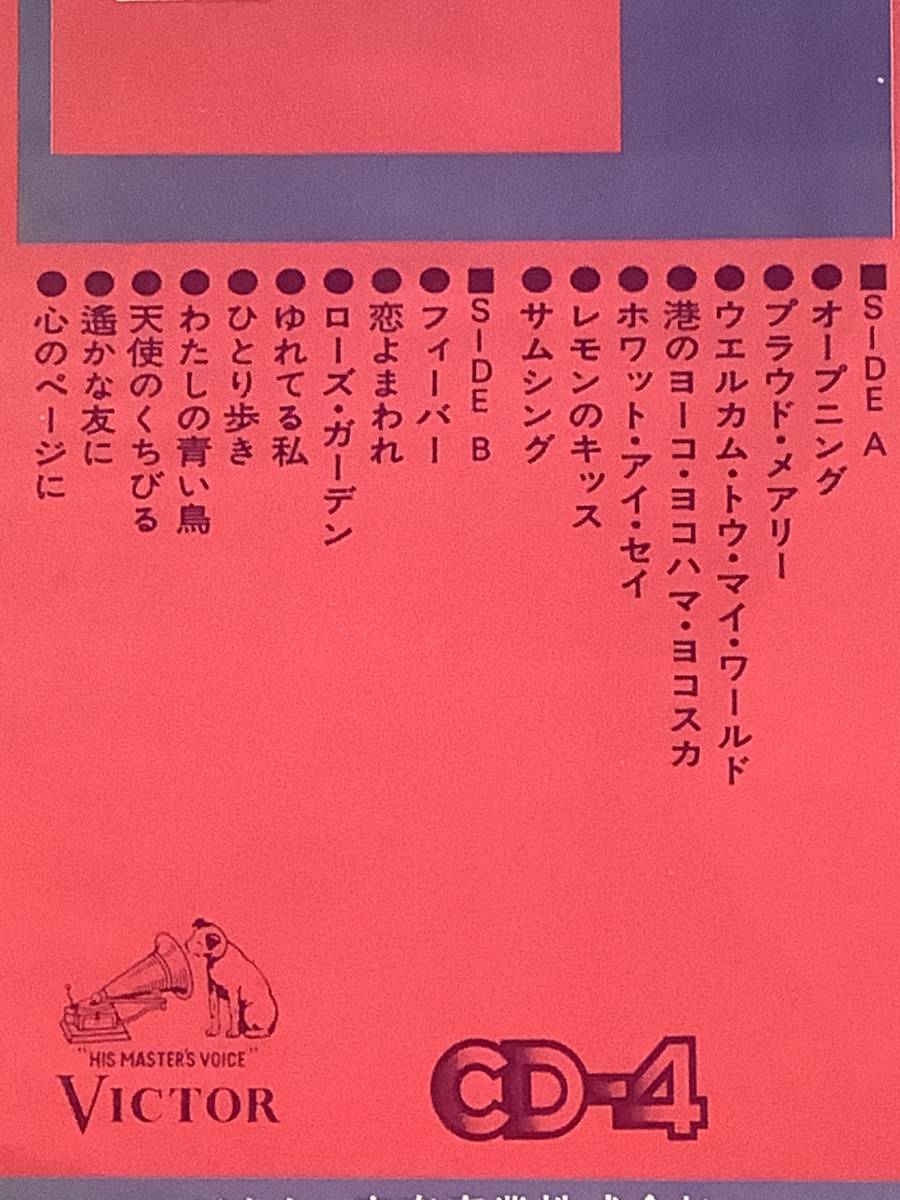 ■SIDE A
●オープニング
●プラウド・メアリー
●ウエルカム・トウ・マイ・ワールド
●港のヨーコ・ヨコハマ・ヨコスカ
●ホワット・アイ・セイ
●レモンのキッス
●サムシング
■SIDE B
●フィーバー
●恋よまわれ
●ローズ・ガーデン
●ゆれてる私
●ひとり歩き
●わたしの青い鳥
●天使のくちびる
●遙かな友に
●心のページに
"HIS MASTER'S VOICE"
VICTOR
CD-4